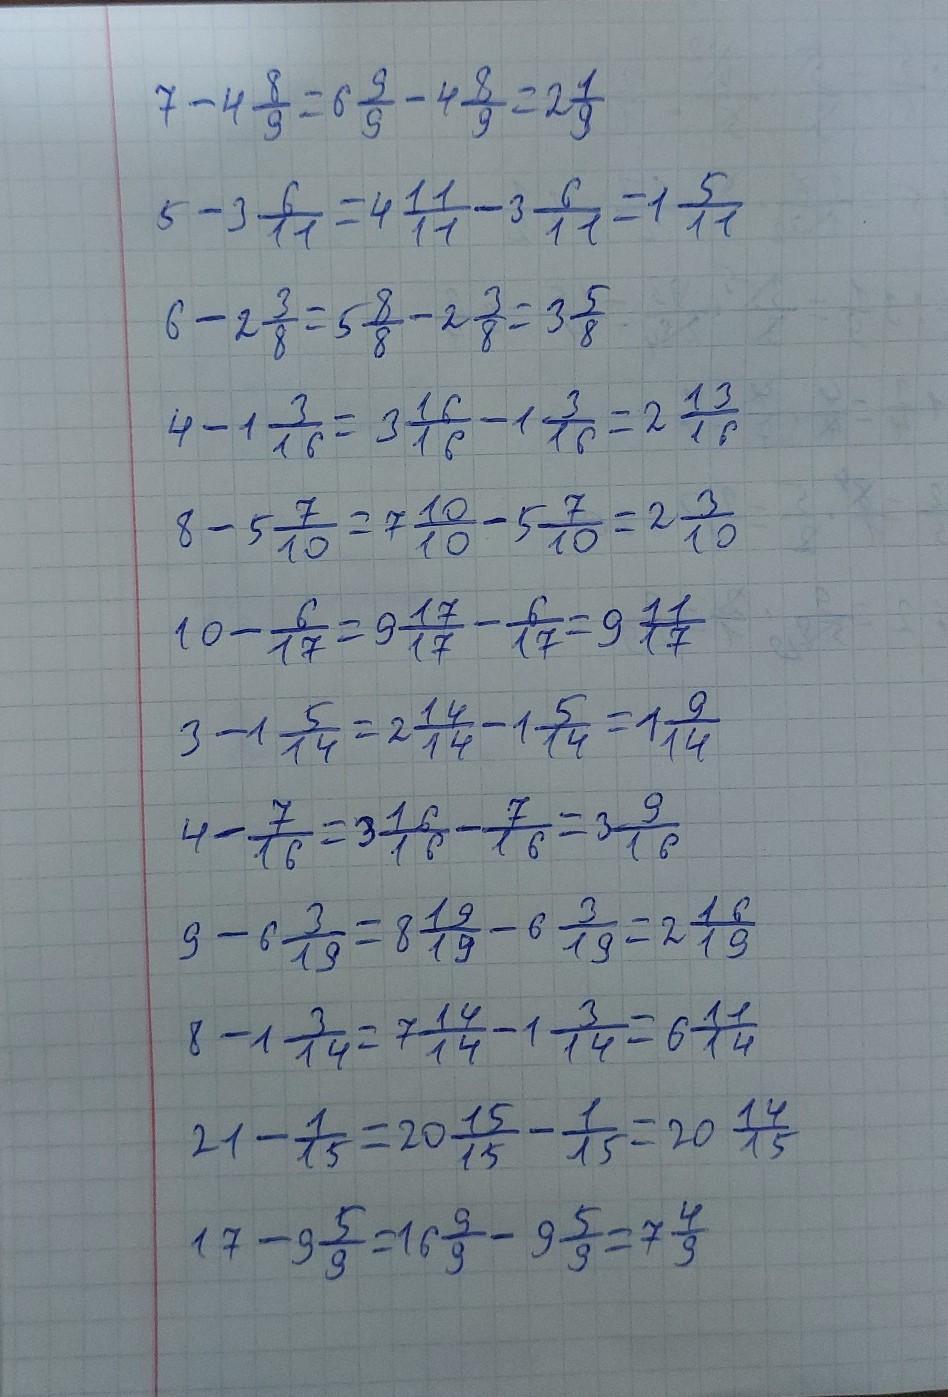 7 - 4 8/9 = 6 9/9 - 4 8/9 = 2 1/9
5 - 3 6/11 = 4 11/11 - 3 6/11 = 1 5/11
6 - 2 3/8 = 5 8/8 - 2 3/8 = 3 5/8
4 - 1 3/16 = 3 16/16 - 1 3/16 = 2 13/16
8 - 5 7/10 = 7 10/10 - 5 7/10 = 2 3/10
10 - 6/17 = 9 17/17 - 6/17 = 9 11/17
3 - 1 5/14 = 2 14/14 - 1 5/14 = 1 9/14
4 - 7/16 = 3 16/16 - 7/16 = 3 9/16
9 - 6 3/19 = 8 19/19 - 6 3/19 = 2 16/19
8 - 1 3/14 = 7 14/14 - 1 3/14 = 6 11/14
21 - 1/15 = 20 15/15 - 1/15 = 20 14/15
17 - 9 5/9 = 16 9/9 - 9 5/9 = 7 4/9